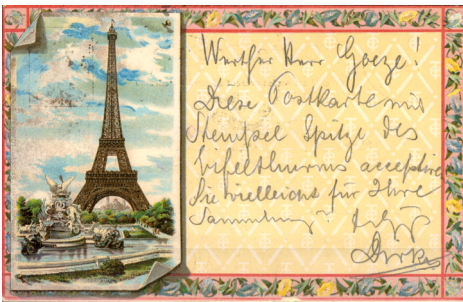 Werther Herr Goeze!
Diese Postkarte mit
Stempel Spitze des
Eifelthurms acceptire
Sie vielleicht für Ihre
Sammlung?
Dirks